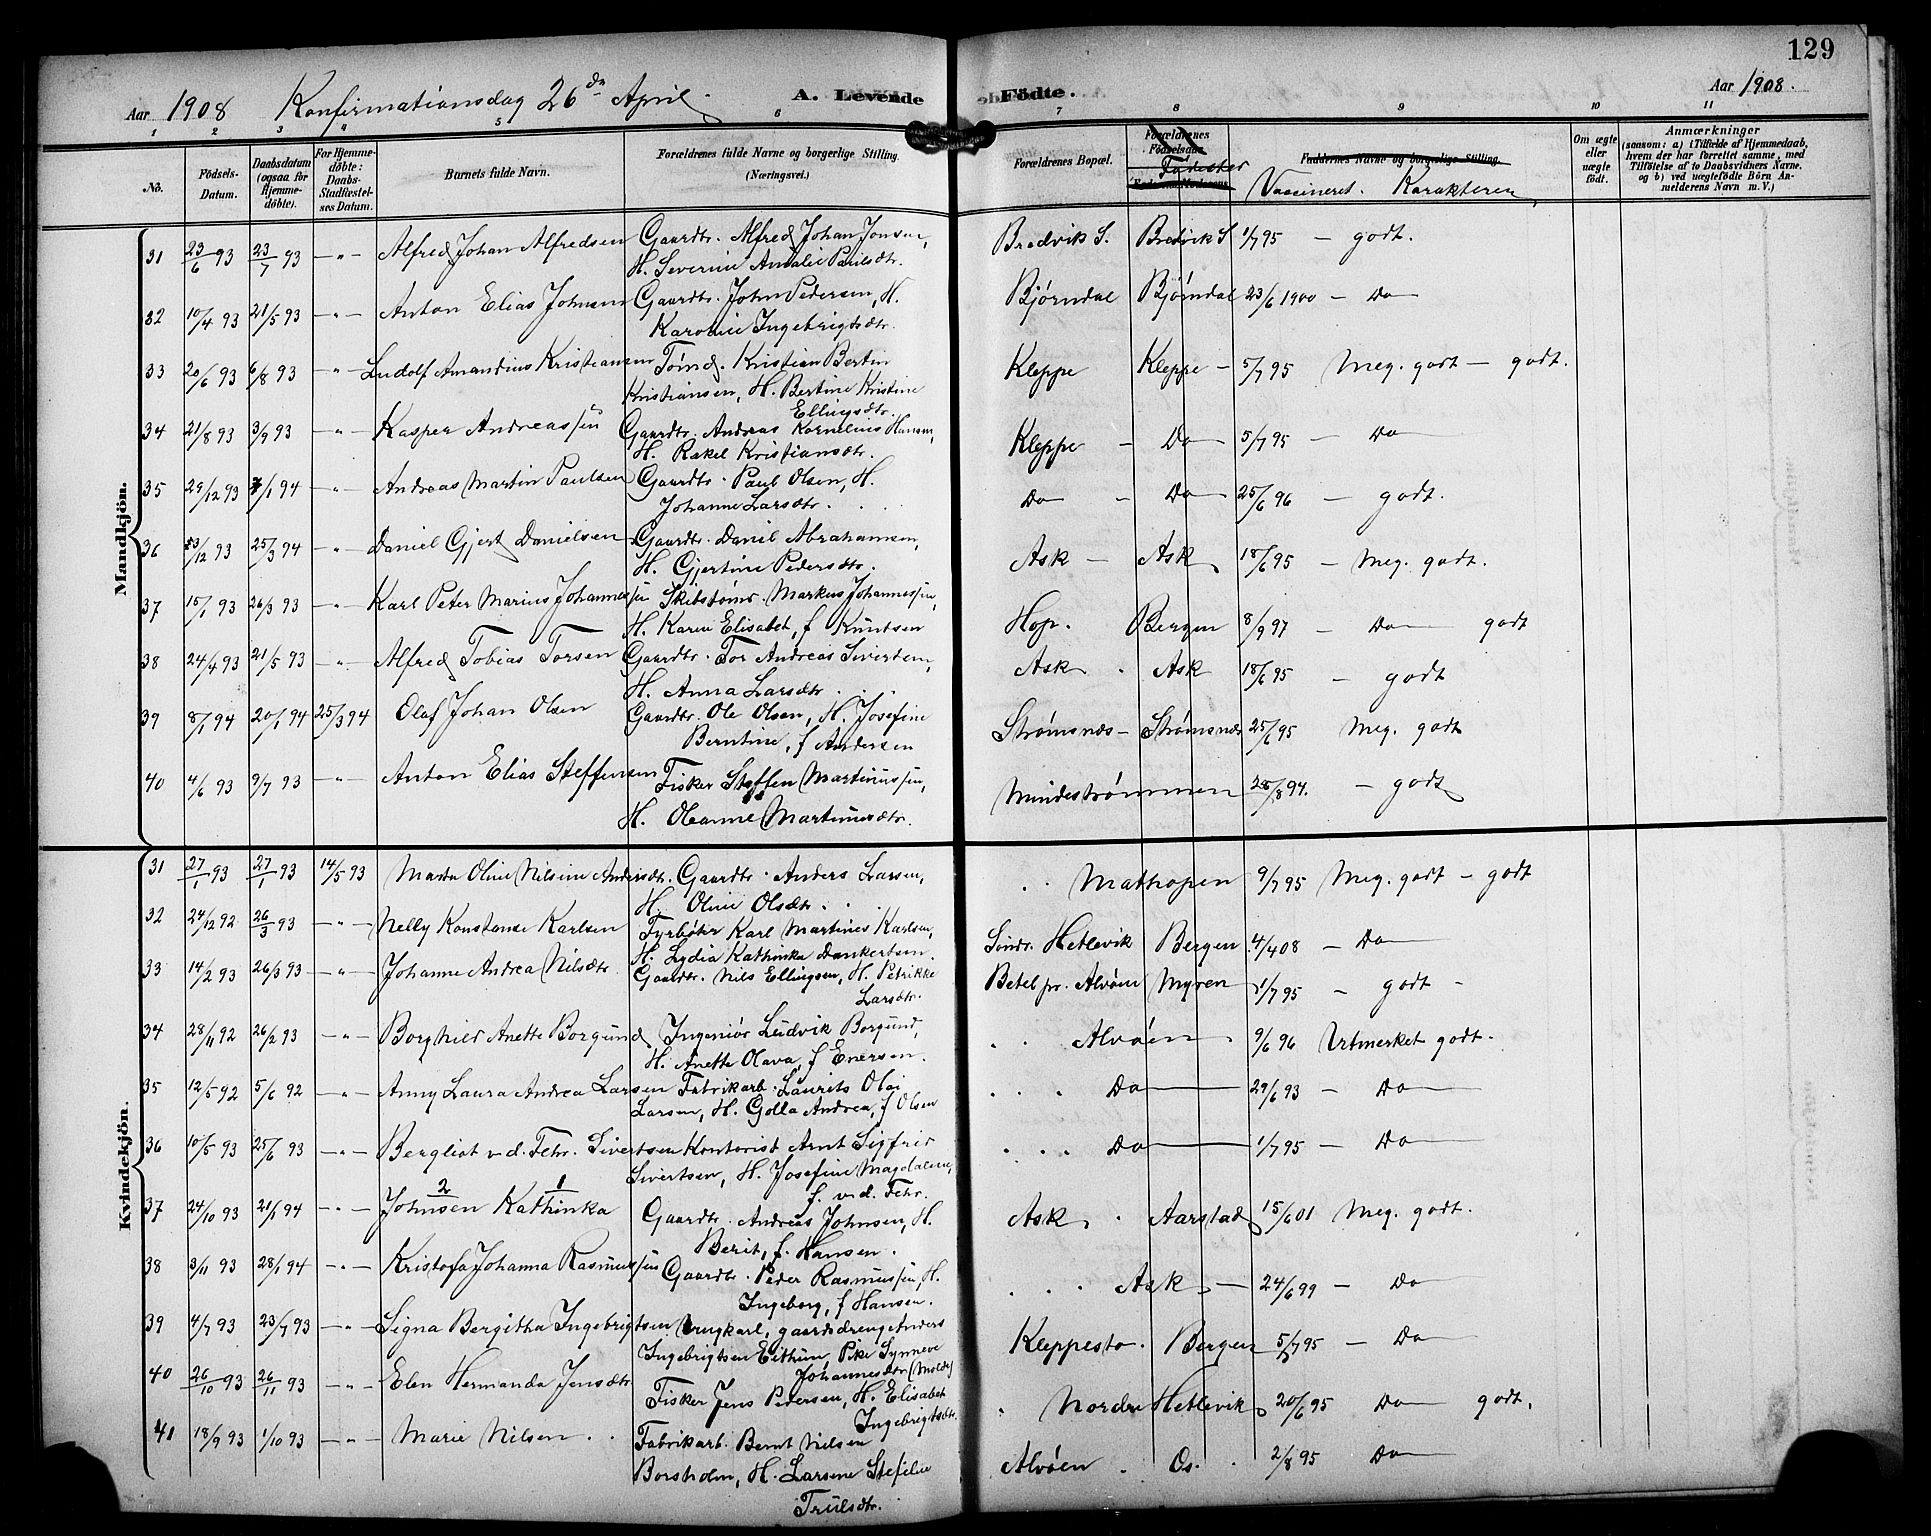 129
Aar 1908 Konfirmationsdag 26de April. A. Levende Födte. Aar 1908.
1 2 3 4 5 6 7 8 9 10 11
No. Födsels-Datum. Daabsdatum (ogsaa for Hjemmedöbte). For Hjemmedöbte: Daabs-Stadfæstelses Datum. Barnets fulde Navn. Forældrenes fulde Navne og borgerlige Stilling. (Næringsvei.) Forældrenes Bopæl. Forældrenes Födselsaar. Fødester Faddernes Navne og borgerlige Stilling. Vaccineret. Karakteren Om ægte eller uægte født. Anmærkninger (saasom: a) i Tilfælde af Hjemmedaab, hvem der har forrettet samme, med Tilföielse af to Daabsvidners Navne. og b) ved uægtefödte Börn Anmelderens Navn m. V.)
Mandkjön.
31 23/6 93 23/7 93 — " — Alfred Johan Alfredsen Gaardbr. Alfred Johan Jonsen, Bredvik S. Bredvik S 1/7 95 — godt.
H. Severine Amalie Paulsdtr.
32 10/4 93 21/5 93 — " — Anton Elias Johnsen Gaardbr. John Pedersen, H. Bjørndal Bjørndal 23/6 1900 — Do
Karoline Ingebrigtsdtr.
33 20/6 93 6/8 93 — " — Ludolf Amandius Kristiansen Tømd. Kristian Bertin Kleppe Kleppe — 5/7 95 Meg. godt — godt.
Kristiansen, H. Bertine Kristine
Ellingsdtr.
34 21/8 93 3/9 93 — " — Kasper Andreassen Gaardbr. Andreas Kornelius Hansen, Kleppe — Do 5/7 95 — Do
H. Rakel Kristiansdtr.
35 29/12 93 7/1 94 — " — Andreas Martin Paulsen Gaardbr. Paul Olsen, H. Do — Do 25/6 96 — godt.
Johanne Larsdtr.
36 23/12 93 25/3 94 — " — Daniel Gjert Danielsen Gaardbr. Daniel Abrahamsen, Ask — Ask 18/6 95 — Meg. godt.
H. Gjertine Pedersdtr.
37 15/1 93 26/3 93 — " — Karl Peter Marius Johannessen Skibstømr. Markus Johannessen, Hop. Bergen 8/9 97 — Do godt
H. Karen Elisabet, f Knutsen
38 24/4 93 21/5 93 — " — Alfred Tobias Torsen Gaardbr. Tor Andreas Sivertsen, Ask . Ask 18/6 95 — godt
H. Anna Larsdtr.
39 8/1 94 20/1 94 25/3 94 Olaf Johan Olsen Gaardbr. Ole Olsen, H. Josefine Strømsnæs — Strømsnæs 25/6 95 Meg. godt
Berntine, f Andersen
40 4/6 93 9/7 93 — " — Anton Elias Steffensen Fisker Steffen Martinussen, Mindestrømmen 28/8 94. — godt
H. Oleanne Martinusdtr.
Kvindekjön.
31 27/1 93 27/1 93 14/5 93 Marta Oline Nilsine Andersdtr. Gaardbr. Anders Larsen, Mathopen 9/7 95 Meg. godt — godt
H. Oline Olsdtr.
32 24/12 92 26/3 93 — " — Nelly Konstanse Karlsen Fyrbøter Karl Martinus Karlsen, Søndr. Hetlevik Bergen 4/4 08 — Do
H. Lydia Kathinka Dankertsen.
33 14/2 93 26/3 93 — " — Johanne Andrea Nilsdtr. Gaardbr. Nils Ellingsen, H. Petrikke Betel pr. Alvøen Myren 1/7 95 — godt —
Larsdtr.
34 28/11 92 26/2 93 — " — Borghild Anette Borgund Ingeniør Ludvik Borgund, Alvøen . 9/6 96 Utmerket godt.
H. Anette Olava, f Enersen.
35 12/5 92 5/6 92 — " — Anny Laura Andrea Larsen Fabrikarb. Laurits Olai Do 29/6 93 — Do
Larsen, H. Golla Andrea, f Olsen
36 10/5 93 25/6 93 — " — Bergliot v.d. Fehr. Sivertsen Kontorist Arnt Sigfrid Do 1/7 95 — Do
Sivertsen, H. Josefine Magdalene,
f. v.d. Fehr.
37 24/10 93 21/1 94 — " — Johnsen 2 Kathinka 1 Gaardbr. Andreas Johnsen, H. Ask . Aarstad 15/6 01 Meg. godt.
Berit, f. Hansen.
38 3/11 93 28/1 94 — " — Kristofa Johanna Rasmussen Gaardbr. Peder Rasmussen H. Ask — 24/6 99 — Do
Ingeborg, f Hansen.
39 4/7 93 23/7 93 — " — Signa Bergitha Ingebrigtsen Ungkarl, gaardsdreng Anders Kleppesto. Bergen 5/7 95 — Do
Ingebrigtsen Eithun, Pike Synneve
Johannesdtr (Molde)
40 26/10 93 26/11 93 — " — Elen Hermanda Jensdtr. Fisker Jens Pedersen, H. Elisabet Nordre Hetlevik 20/6 95 Do godt.
Ingebrigtsdtr.
41 18/9 93 1/10 93 — " — Marie Nilsen . . Fabrikarb. Bernt Nilsen Alvøen . Os. 2/8 95 Do
Borsholm, H. Larsine Stefelie
Trulsdtr.